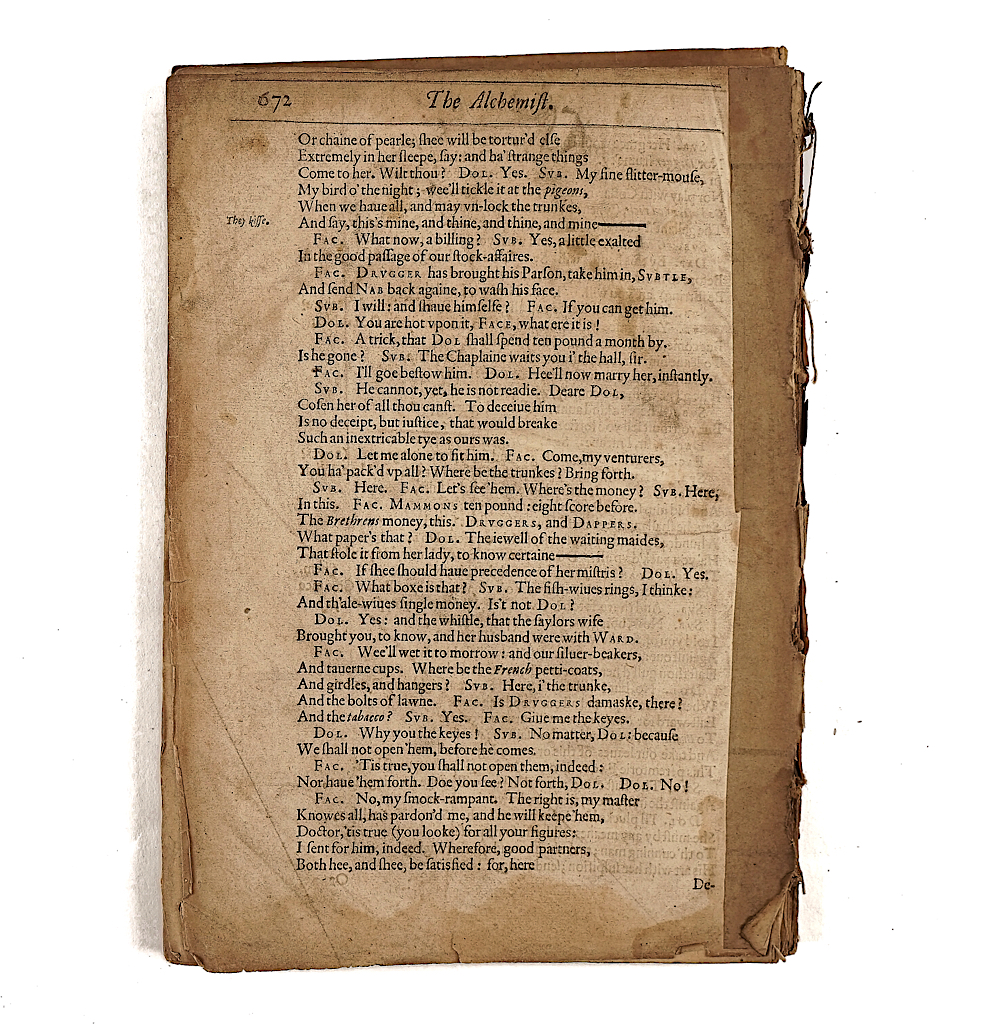 672
The Alchemiſt.
Or chaine of pearle; ſhee will be tortur'd elſe
Extremely in her ſleepe, ſay: and ha' ſtrange things
Come to her. Wilt thou? DOL. Yes. SVB. My fine flitter-mouſe,
My bird o' the night; wee'll tickle it at the pigeons,
When we haue all, and may vn-lock the trunkes,
They kiſſe.
And ſay, this's mine, and thine, and thine, and mine———
FAC. What now, a billing? SVB. Yes, a little exalted
In the good paſſage of our ſtock-affaires.
FAC. DRVGGER has brought his Parſon, take him in, SVBTLE,
And ſend NAB back againe, to waſh his face.
SVB. I will: and ſhaue himſelfe? FAC. If you can get him.
DOL. You are hot vpon it, FACE, what ere it is!
FAC. A trick, that DOL ſhall ſpend ten pound a month by.
Is he gone? SVB. The Chaplaine waits you i' the hall, ſir.
FAC. I'll goe beſtow him. DOL. Hee'll now marry her, inſtantly.
SVB. He cannot, yet, he is not readie. Deare DOL,
Coſen her of all thou canſt. To deceiue him
Is no deceipt, but iuſtice, that would breake
Such an inextricable tye as ours was.
DOL. Let me alone to fit him. FAC. Come, my venturers,
You ha' pack'd vp all? Where be the trunkes? Bring forth.
SVB. Here. FAC. Let's ſee 'hem. Where's the money? SVB. Here,
In this. FAC. MAMMONS ten pound: eight ſcore before.
The Brethrens money, this. DRVGGERS, and DAPPERS.
What paper's that? DOL. The iewell of the waiting maides,
That ſtole it from her lady, to know certaine———
FAC. If ſhee ſhould haue precedence of her miſtris? DOL. Yes.
FAC. What boxe is that? SVB. The fiſh-wiues rings, I thinke:
And th'ale-wiues ſingle money. Is't not DOL?
DOL. Yes: and the whiſtle, that the ſaylors wife
Brought you, to know, and her husband were with WARD.
FAC. Wee'll wet it to morrow: and our ſiluer-beakers,
And tauerne cups. Where be the French petti-coats,
And girdles, and hangers? SVB. Here, i' the trunke,
And the bolts of lawne. FAC. Is DRVGGERS damaske, there?
And the tabacco? SVB. Yes. FAC. Giue me the keyes.
DOL. Why you the keyes! SVB. No matter, DOL: becauſe
We ſhall not open 'hem, before he comes.
FAC. 'Tis true, you ſhall not open them, indeed:
Nor haue 'hem forth. Doe you ſee? Not forth, DOL. DOL. No!
FAC. No, my ſmock-rampant. The right is, my maſter
Knowes all, has pardon'd me, and he will keepe 'hem,
Doctor, 'tis true (you looke) for all your figures:
I ſent for him, indeed. Wherefore, good partners,
Both hee, and ſhee, be ſatisfied: for, here
De-